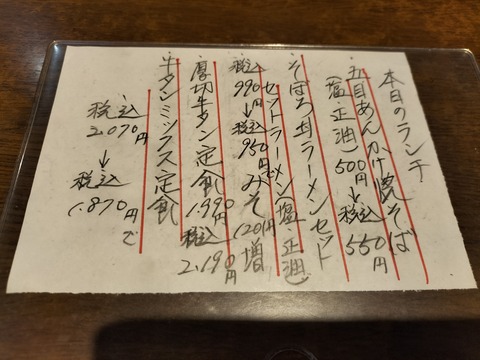 本日のランチ
五目あんかけ焼そば
(塩・正油) 500円→税込550円
そぼろ丼ラーメンセット
セットラーメン(塩・正油)
税込990円→税込950円で みそ120円増
厚切牛タン定食 1.990円 税込2.190円
牛タンミックス定食
税込2.070円→税込1.870円で